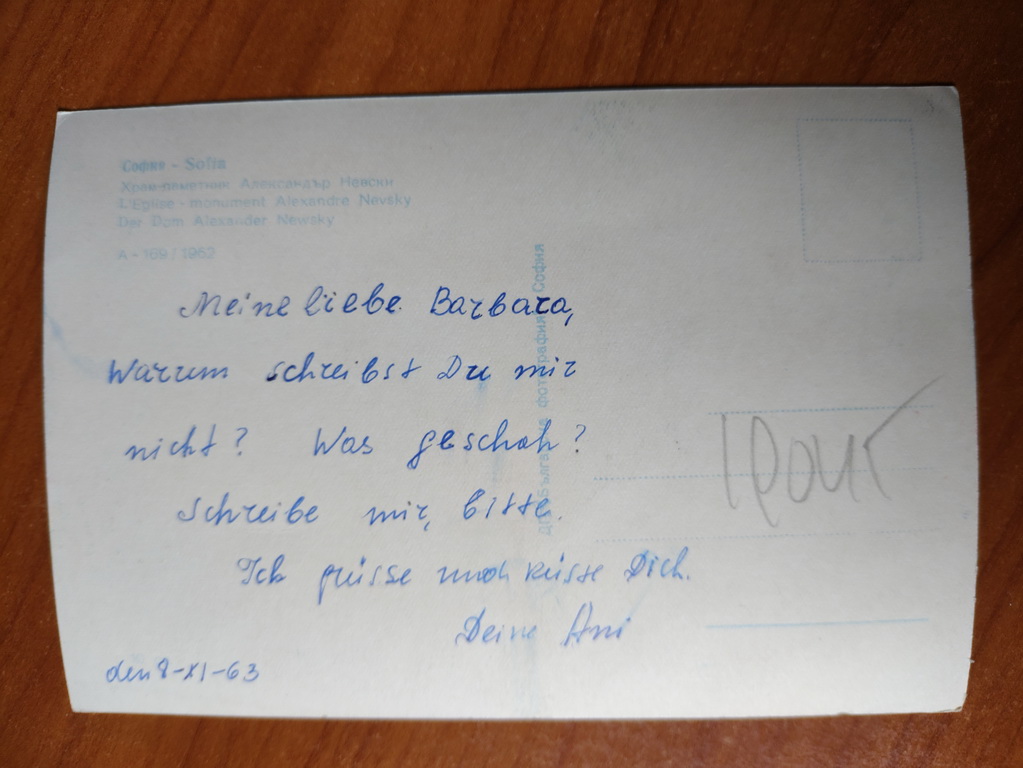 София - Sofia
Храм-паметник Александър Невски
L'Eglise - monument Alexandre Nevsky
Der Dom Alexander Newsky
A - 169 / 1962
Meine liebe Barbara,
Warum schreibst Du mir
nicht? Was geschah?
Schreibe mir, bitte.
Ich grüsse und küsse Dich.
Deine Ani
den 8-XI-63
фотография София